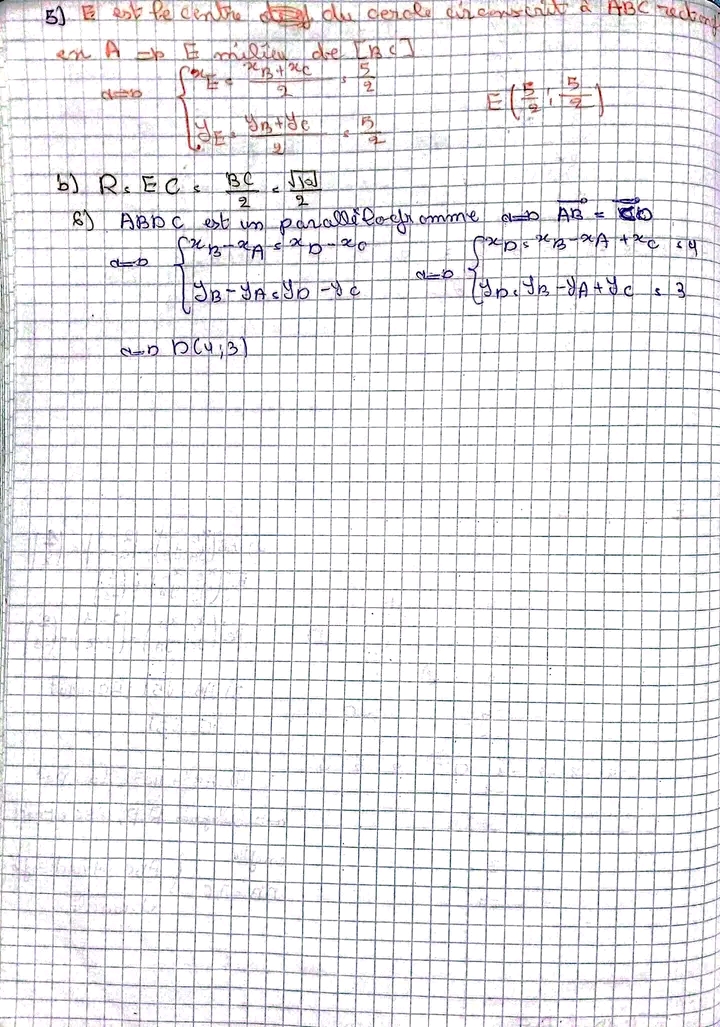 5) E est le centre du cercle circonscrit à ABC rectang
en A => E milieu de [BC]
<=> { xE = (xB + xC)/2 = 5/2
yE = (yB + yC)/2 = 5/2
E(5/2 ; 5/2)
b) R = EC = BC/2 = √10/2
6) ABDC est un parallélogramme <=> AB = CD
<=> { xB - xA = xD - xC
yB - yA = yD - yC
<=> { xD = xB - xA + xC = 4
yD = yB - yA + yC = 3
<=> D(4;3)